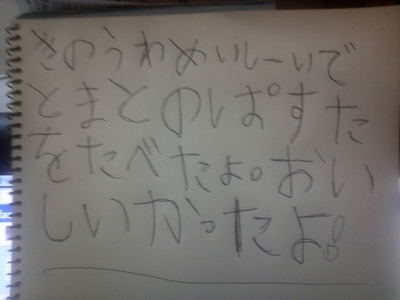 きのうわめいしーいで
とまとのぱすた
をたべたよ。おい
しいかったよ。